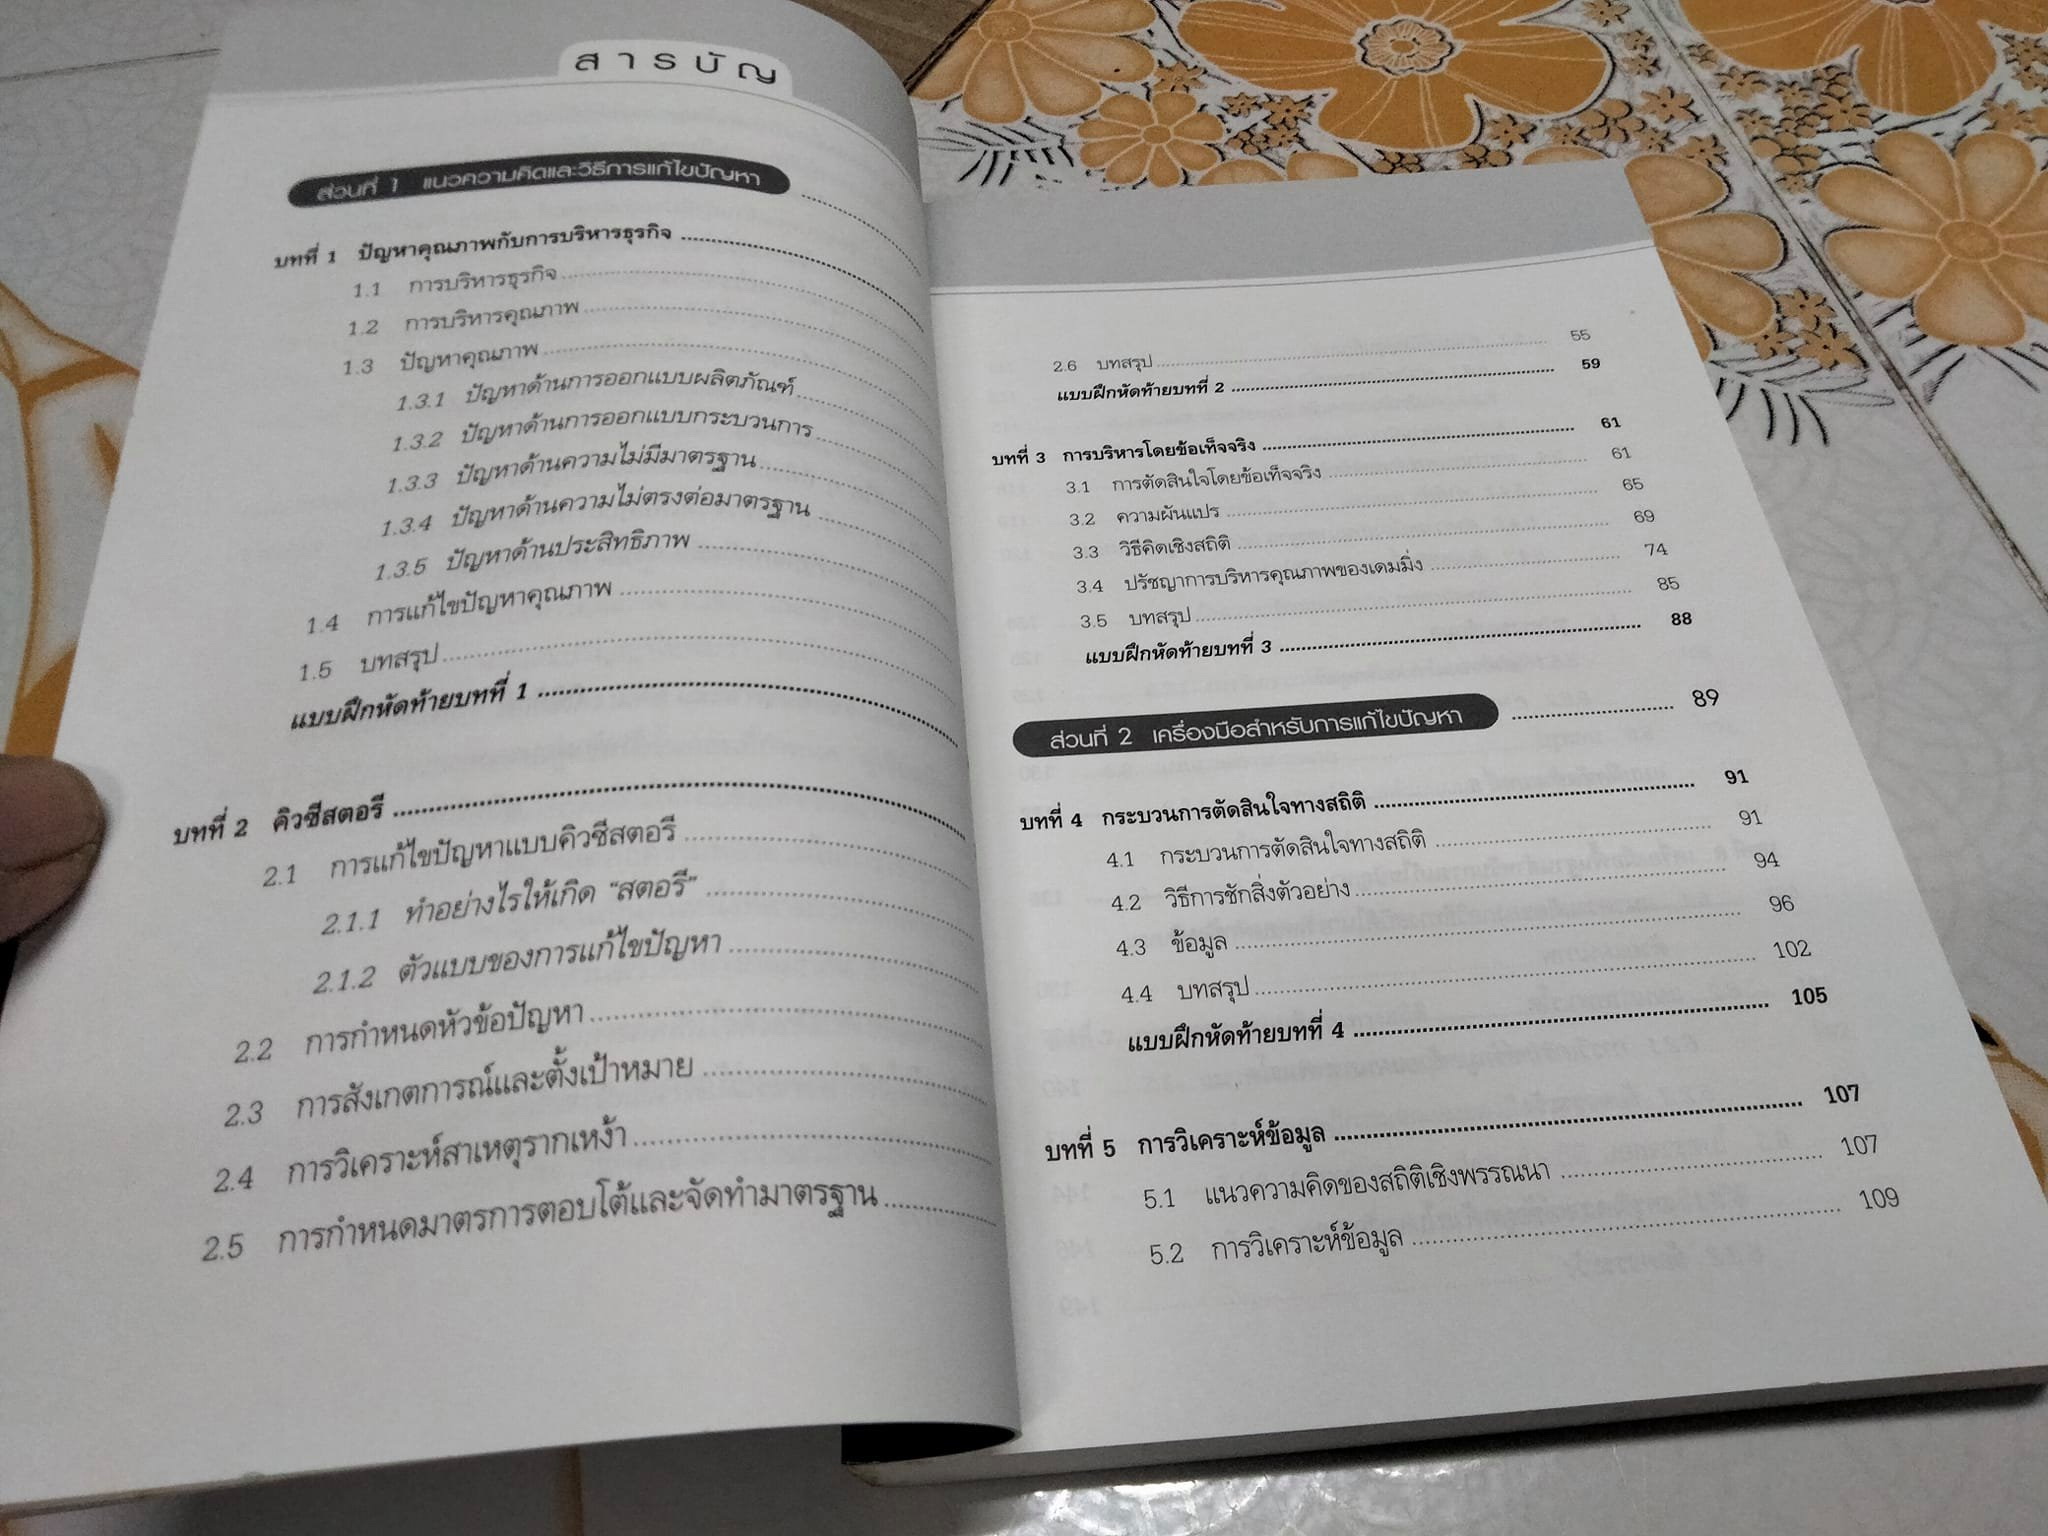 สารบัญ
ส่วนที่ 1 แนวความคิดและวิธีการแก้ไขปัญหา
บทที่ 1 ปัญหาคุณภาพกับการบริหารธุรกิจ
1.1 การบริหารธุรกิจ
1.2 การบริหารคุณภาพ
1.3 ปัญหาคุณภาพ
1.3.1 ปัญหาด้านการออกแบบผลิตภัณฑ์
1.3.2 ปัญหาด้านการออกแบบกระบวนการ
1.3.3 ปัญหาด้านความไม่มีมาตรฐาน
1.3.4 ปัญหาด้านความไม่ตรงต่อมาตรฐาน
1.3.5 ปัญหาด้านประสิทธิภาพ
1.4 การแก้ไขปัญหาคุณภาพ
1.5 บทสรุป
แบบฝึกหัดท้ายบทที่ 1
บทที่ 2 คิวซีสตอรี
2.1 การแก้ไขปัญหาแบบคิวซีสตอรี
2.1.1 ทำอย่างไรให้เกิด "สตอรี"
2.1.2 ตัวแบบของการแก้ไขปัญหา
2.2 การกำหนดหัวข้อปัญหา
2.3 การสังเกตการณ์และตั้งเป้าหมาย
2.4 การวิเคราะห์สาเหตุรากเหง้า
2.5 การกำหนดมาตรการตอบโต้และจัดทำมาตรฐาน
2.6 บทสรุป 55
แบบฝึกหัดท้ายบทที่ 2 59
บทที่ 3 การบริหารโดยข้อเท็จจริง 61
3.1 การตัดสินใจโดยข้อเท็จจริง 61
3.2 ความผันแปร 65
3.3 วิธีคิดเชิงสถิติ 69
3.4 ปรัชญาการบริหารคุณภาพของเดมมิ่ง 74
3.5 บทสรุป 85
แบบฝึกหัดท้ายบทที่ 3 88
ส่วนที่ 2 เครื่องมือสำหรับการแก้ไขปัญหา 89
บทที่ 4 กระบวนการตัดสินใจทางสถิติ 91
4.1 กระบวนการตัดสินใจทางสถิติ 91
4.2 วิธีการชักสิ่งตัวอย่าง 94
4.3 ข้อมูล 96
4.4 บทสรุป 102
แบบฝึกหัดท้ายบทที่ 4 105
บทที่ 5 การวิเคราะห์ข้อมูล 107
5.1 แนวความคิดของสถิติเชิงพรรณนา 107
5.2 การวิเคราะห์ข้อมูล 109